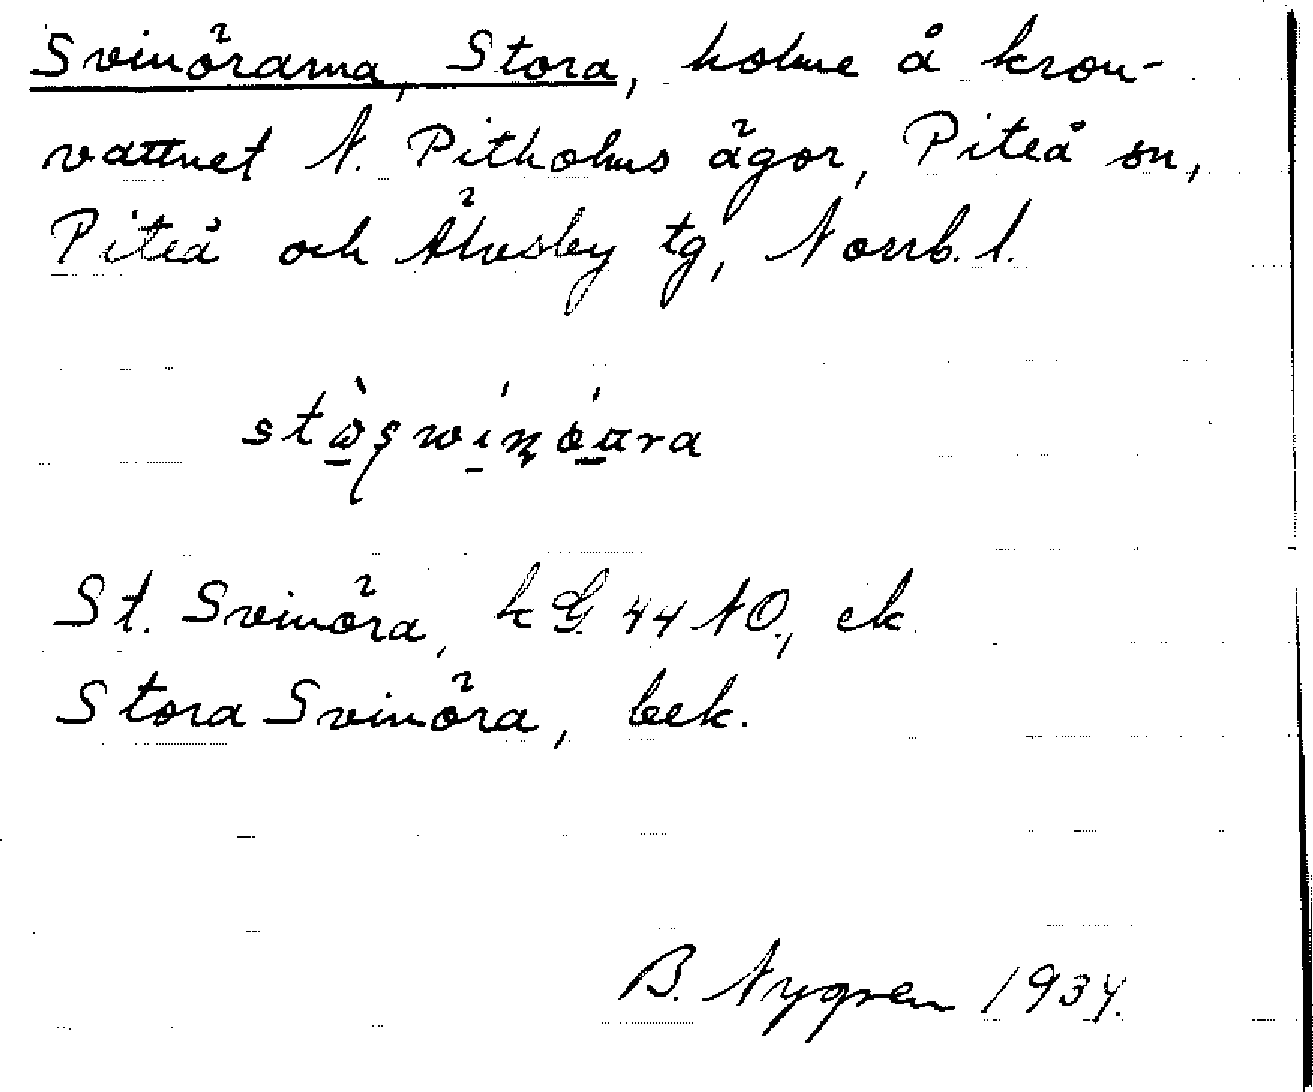 Svinörarna, Stora, holme å kron-
vattnet N. Pitholms ägor, Piteå sn,
Piteå och Älvsby tg, Norrb. l.
St. Svinöra, k G. 44 NO., ek
Stora Svinöra, bek.
B. Nygren 1934.